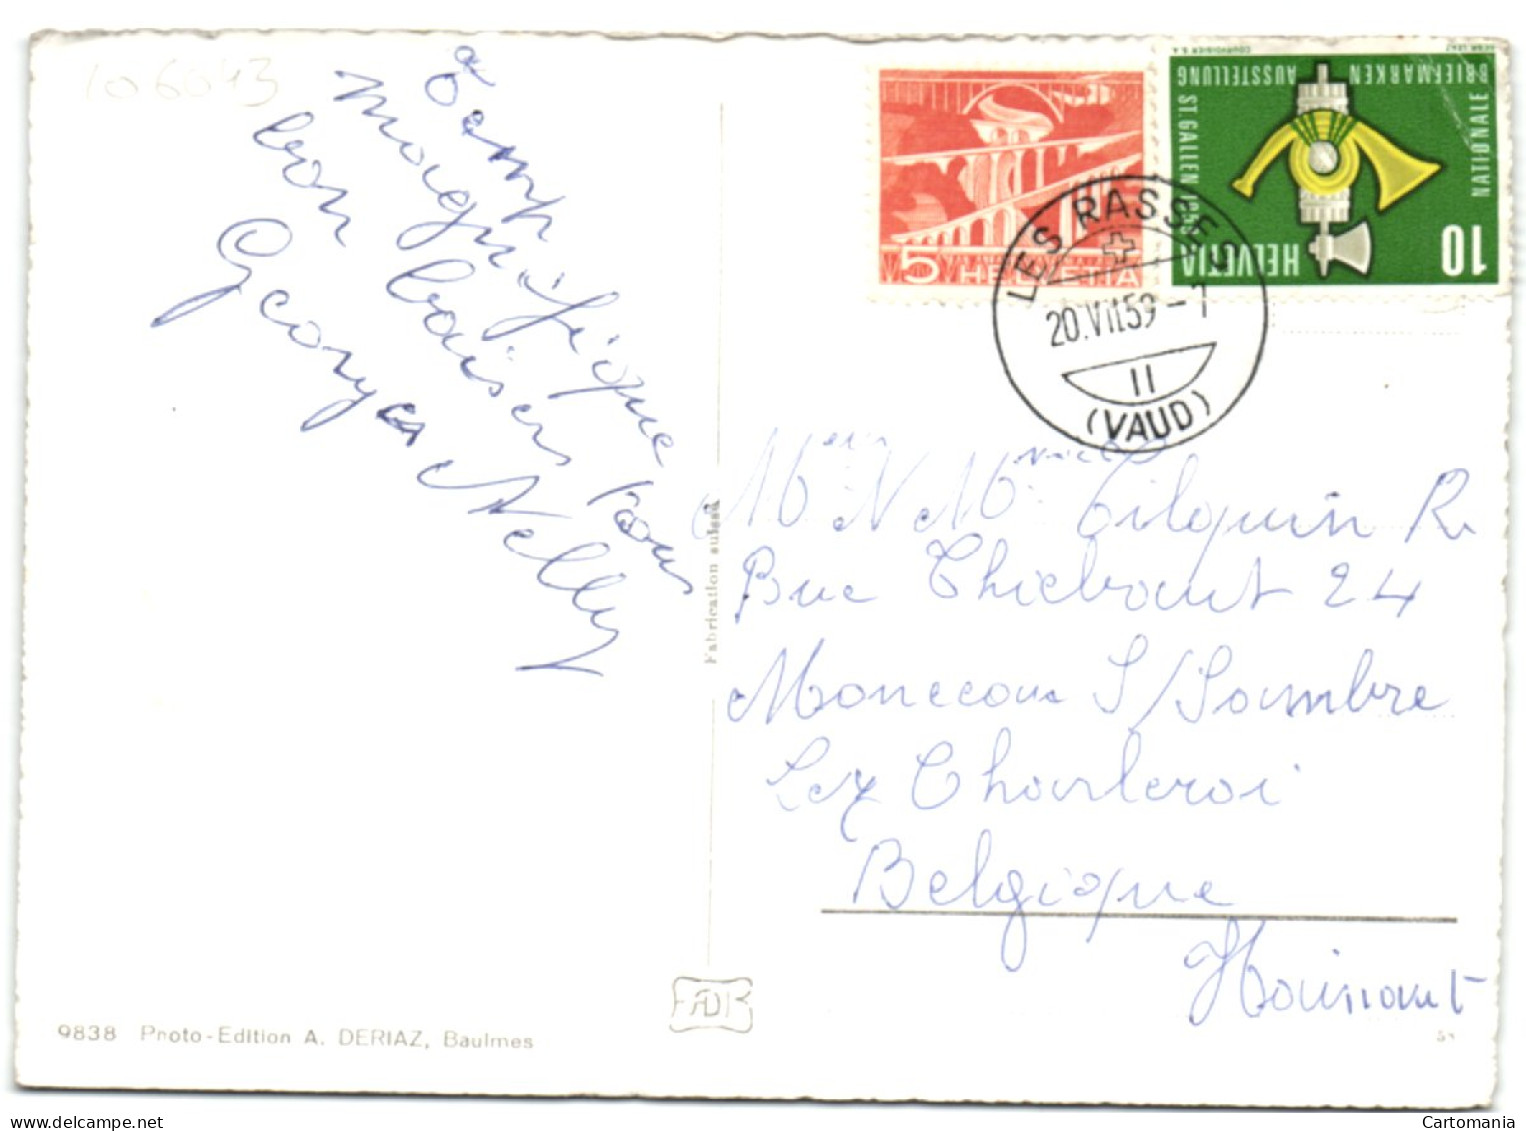 106043
Temp
magnifique
bon baisers tous
Georges Nelly
Fabrication suisse
5
HELVETIA
COURVOISIER S.A.
NATIONALE
BRIEFMARKEN
AUSSTELLUNG
ST. GALLEN 1959
HELVETIA
10
LES RASSES
20.VII.59-7
11
(VAUD)
Tilquin R.
Rue Thiebaut 24
Monceau S/Sambre
Lez Charleroi
Belgique
Hainaut
9838 Photo-Edition A. DERIAZ, Baulmes
ADB
Cartomania